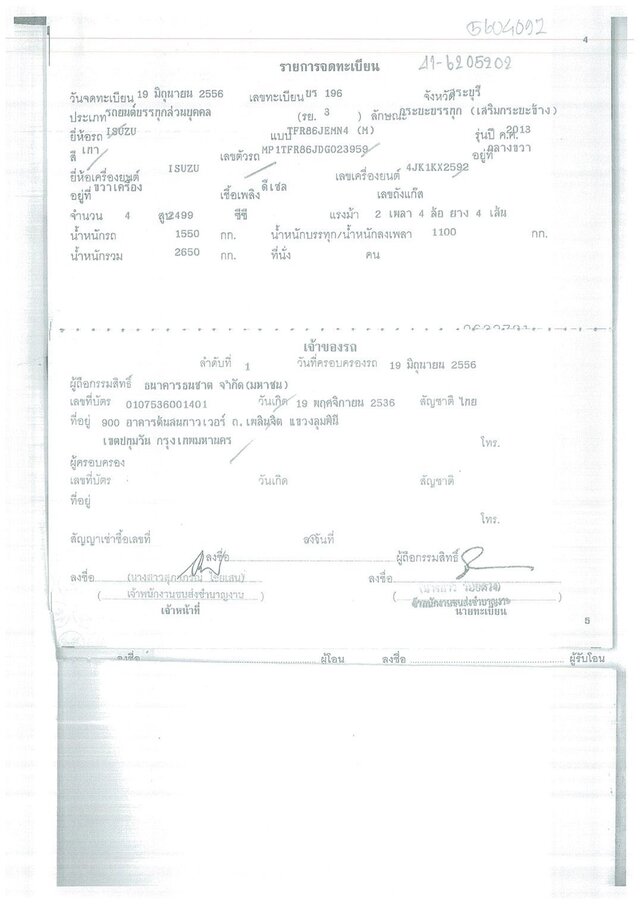 5604092
4
รายการจดทะเบียน 41-6205202
วันจดทะเบียน 19 มิถุนายน 2556 เลขทะเบียน บร 196 จังหวัด สระบุรี
ประเภท รถยนต์บรรทุกส่วนบุคคล (รย. 3 ) ลักษณะ กระบะบรรทุก (เสริมกระบะข้าง)
ยี่ห้อรถ ISUZU แบบ TFR86JEMN4 (M) รุ่นปี ค.ศ. 2013
สี เทา เลขตัวรถ MP1TFR86JDG023959 อยู่ที่ กลางขวา
ยี่ห้อเครื่องยนต์ ISUZU เลขเครื่องยนต์ 4JK1KX2592
อยู่ที่ ขวาเครื่อง เชื้อเพลิง ดีเซล เลขถังแก๊ส
จำนวน 4 สูบ 2499 ซีซี แรงม้า 2 เพลา 4 ล้อ ยาง 4 เส้น
น้ำหนักรถ 1550 กก. น้ำหนักบรรทุก/น้ำหนักลงเพลา 1100 กก.
น้ำหนักรวม 2650 กก. ที่นั่ง คน
เจ้าของรถ
ลำดับที่ 1 วันที่ครอบครองรถ 19 มิถุนายน 2556
ผู้ถือกรรมสิทธิ์ ธนาคารธนชาต จำกัด(มหาชน)
เลขที่บัตร 0107536001401 วันเกิด 19 พฤศจิกายน 2536 สัญชาติ ไทย
ที่อยู่ 900 อาคารต้นสนทาวเวอร์ ถ.เพลินจิต แขวงลุมพินี
เขตปทุมวัน กรุงเทพมหานคร โทร.
ผู้ครอบครอง
เลขที่บัตร วันเกิด สัญชาติ
ที่อยู่
โทร.
สัญญาเช่าซื้อเลขที่ ลงวันที่
ลงชื่อ ผู้ถือกรรมสิทธิ์
ลงชื่อ ลงชื่อ
( เจ้าพนักงานขนส่งชำนาญงาน ) ( เจ้าพนักงานขนส่งชำนาญงาน )
เจ้าหน้าที่ นายทะเบียน
5
ลงชื่อ ผู้โอน ลงชื่อ ผู้รับโอน